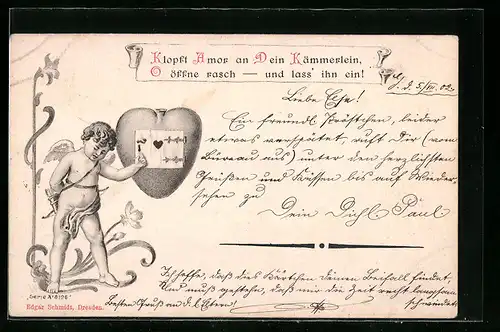 Klopft Amor an Dein Kämmerlein,
O öffne rasch — und lass' ihn ein!
G. d. 5/VII. 02
Liebe Else!
Ein freundl. Prösterchen, leider
etwas verspätet, ruft Dir (vom
Bureau aus) unter den herzlichsten
Grüßen und Küssen bis auf Wieder-
sehen zu
Dein Dichl. Paul
Ich hoffe, daß das Kärtchen deinen Beifall findet.
Und muß gestehen, daß mir die Zeit recht langsam
schwindet
Besten Gruß an d. l. Eltern!
Serie № 8106
Edgar Schmidt, Dresden.